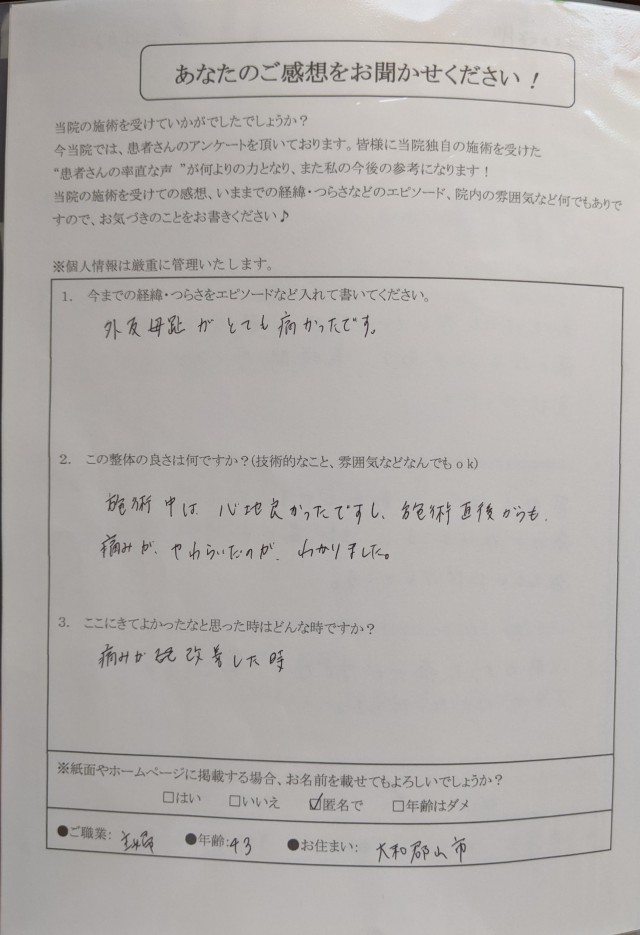 あなたのご感想をお聞かせください！
当院の施術を受けていかがでしたでしょうか？
今当院では、患者さんのアンケートを頂いております。皆様に当院独自の施術を受けた
“患者さんの率直な声 ”が何よりの力となり、また私の今後の参考になります！
当院の施術を受けての感想、いままでの経緯・つらさなどのエピソード、院内の雰囲気など何でもありで
すので、お気づきのことをお書きください♪
※個人情報は厳重に管理いたします。
1． 今までの経緯・つらさをエピソードなど入れて書いてください。
外反母趾がとても痛かったです。
2． この整体の良さは何ですか？(技術的なこと、雰囲気などなんでもｏｋ)
施術中は、心地良かったですし、施術直後からも、
痛みが、やわらいだのが、わかりました。
3． ここにきてよかったなと思った時はどんな時ですか？
痛みが改善した時
※紙面やホームページに掲載する場合、お名前を載せてもよろしいでしょうか？
□はい □いいえ ☑匿名で □年齢はダメ
●ご職業： 主婦 ●年齢：43 ●お住まい： 大和郡山市